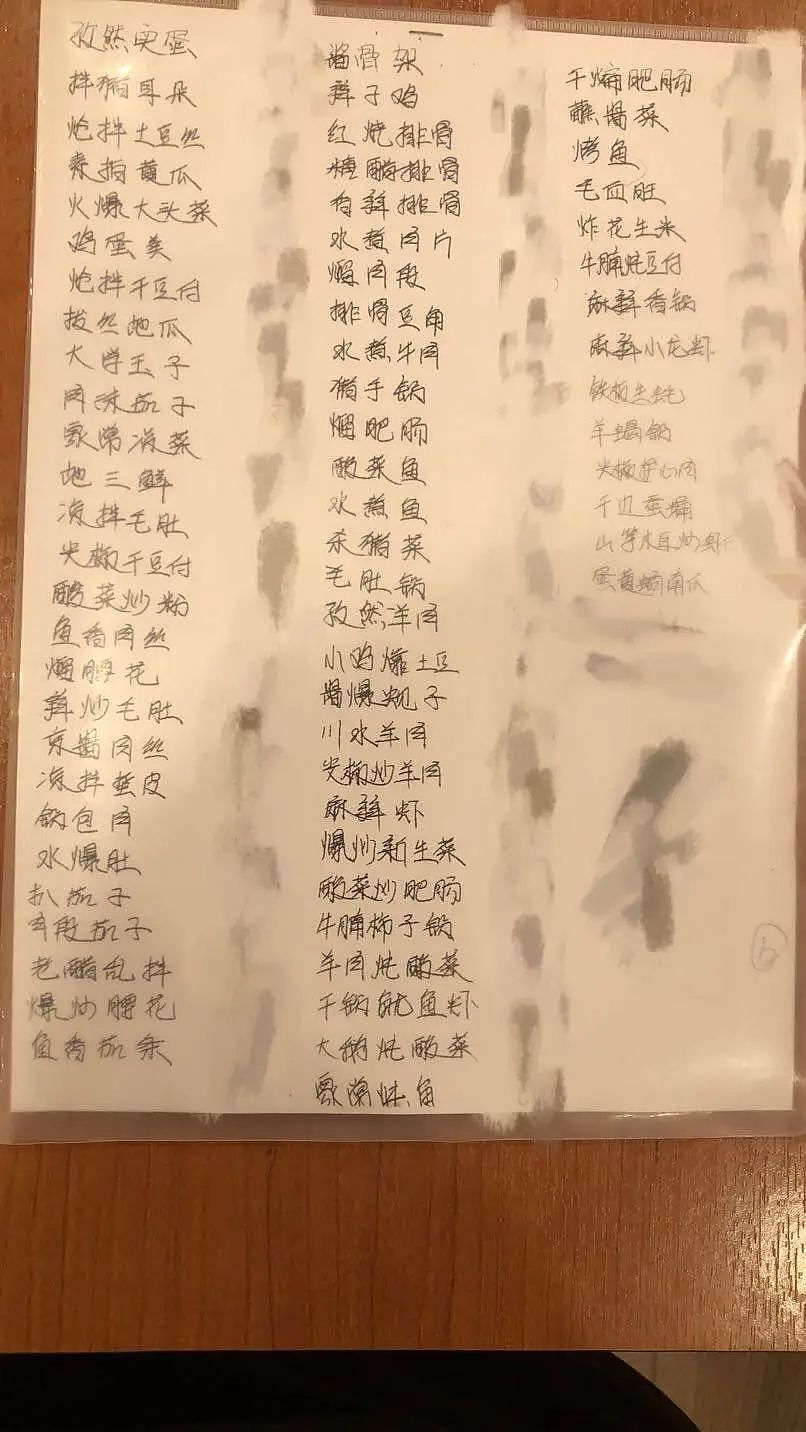 孜然实蛋
拌猪耳朵
炝拌土豆丝
素拍黄瓜
火爆大头菜
鸡蛋羹
炝拌干豆付
拔丝地瓜
大学玉子
肉沫茄子
家常凉菜
地三鲜
凉拌毛肚
尖椒干豆付
酸菜炒粉
鱼香肉丝
熘腰花
辣炒毛肚
京酱肉丝
凉拌蜇皮
锅包肉
水爆肚
扒茄子
肉段茄子
老醋乱拌
爆炒腰花
鱼香茄条
酱骨架
辣子鸡
红烧排骨
糖醋排骨
香辣排骨
水煮肉片
熘肉段
排骨豆角
水煮牛肉
猪手锅
熘肥肠
酸菜鱼
水煮鱼
杀猪菜
毛肚锅
孜然羊肉
小鸡炖土豆
酱爆蚬子
川水羊肉
尖椒炒羊肉
麻辣虾
爆炒新生菜
酸菜炒肥肠
牛腩柿子锅
羊肉炖酸菜
干锅鱿鱼虾
大鹅炖酸菜
家常炖鱼
干煸肥肠
蘸酱菜
烤鱼
毛血旺
炸花生米
牛腩炖豆付
麻辣香锅
麻辣小龙虾
铁板生蚝
羊蝎锅
尖椒护心肉
干边蚕蛹
山芋木耳炒虾仁
蛋黄焗南瓜
6